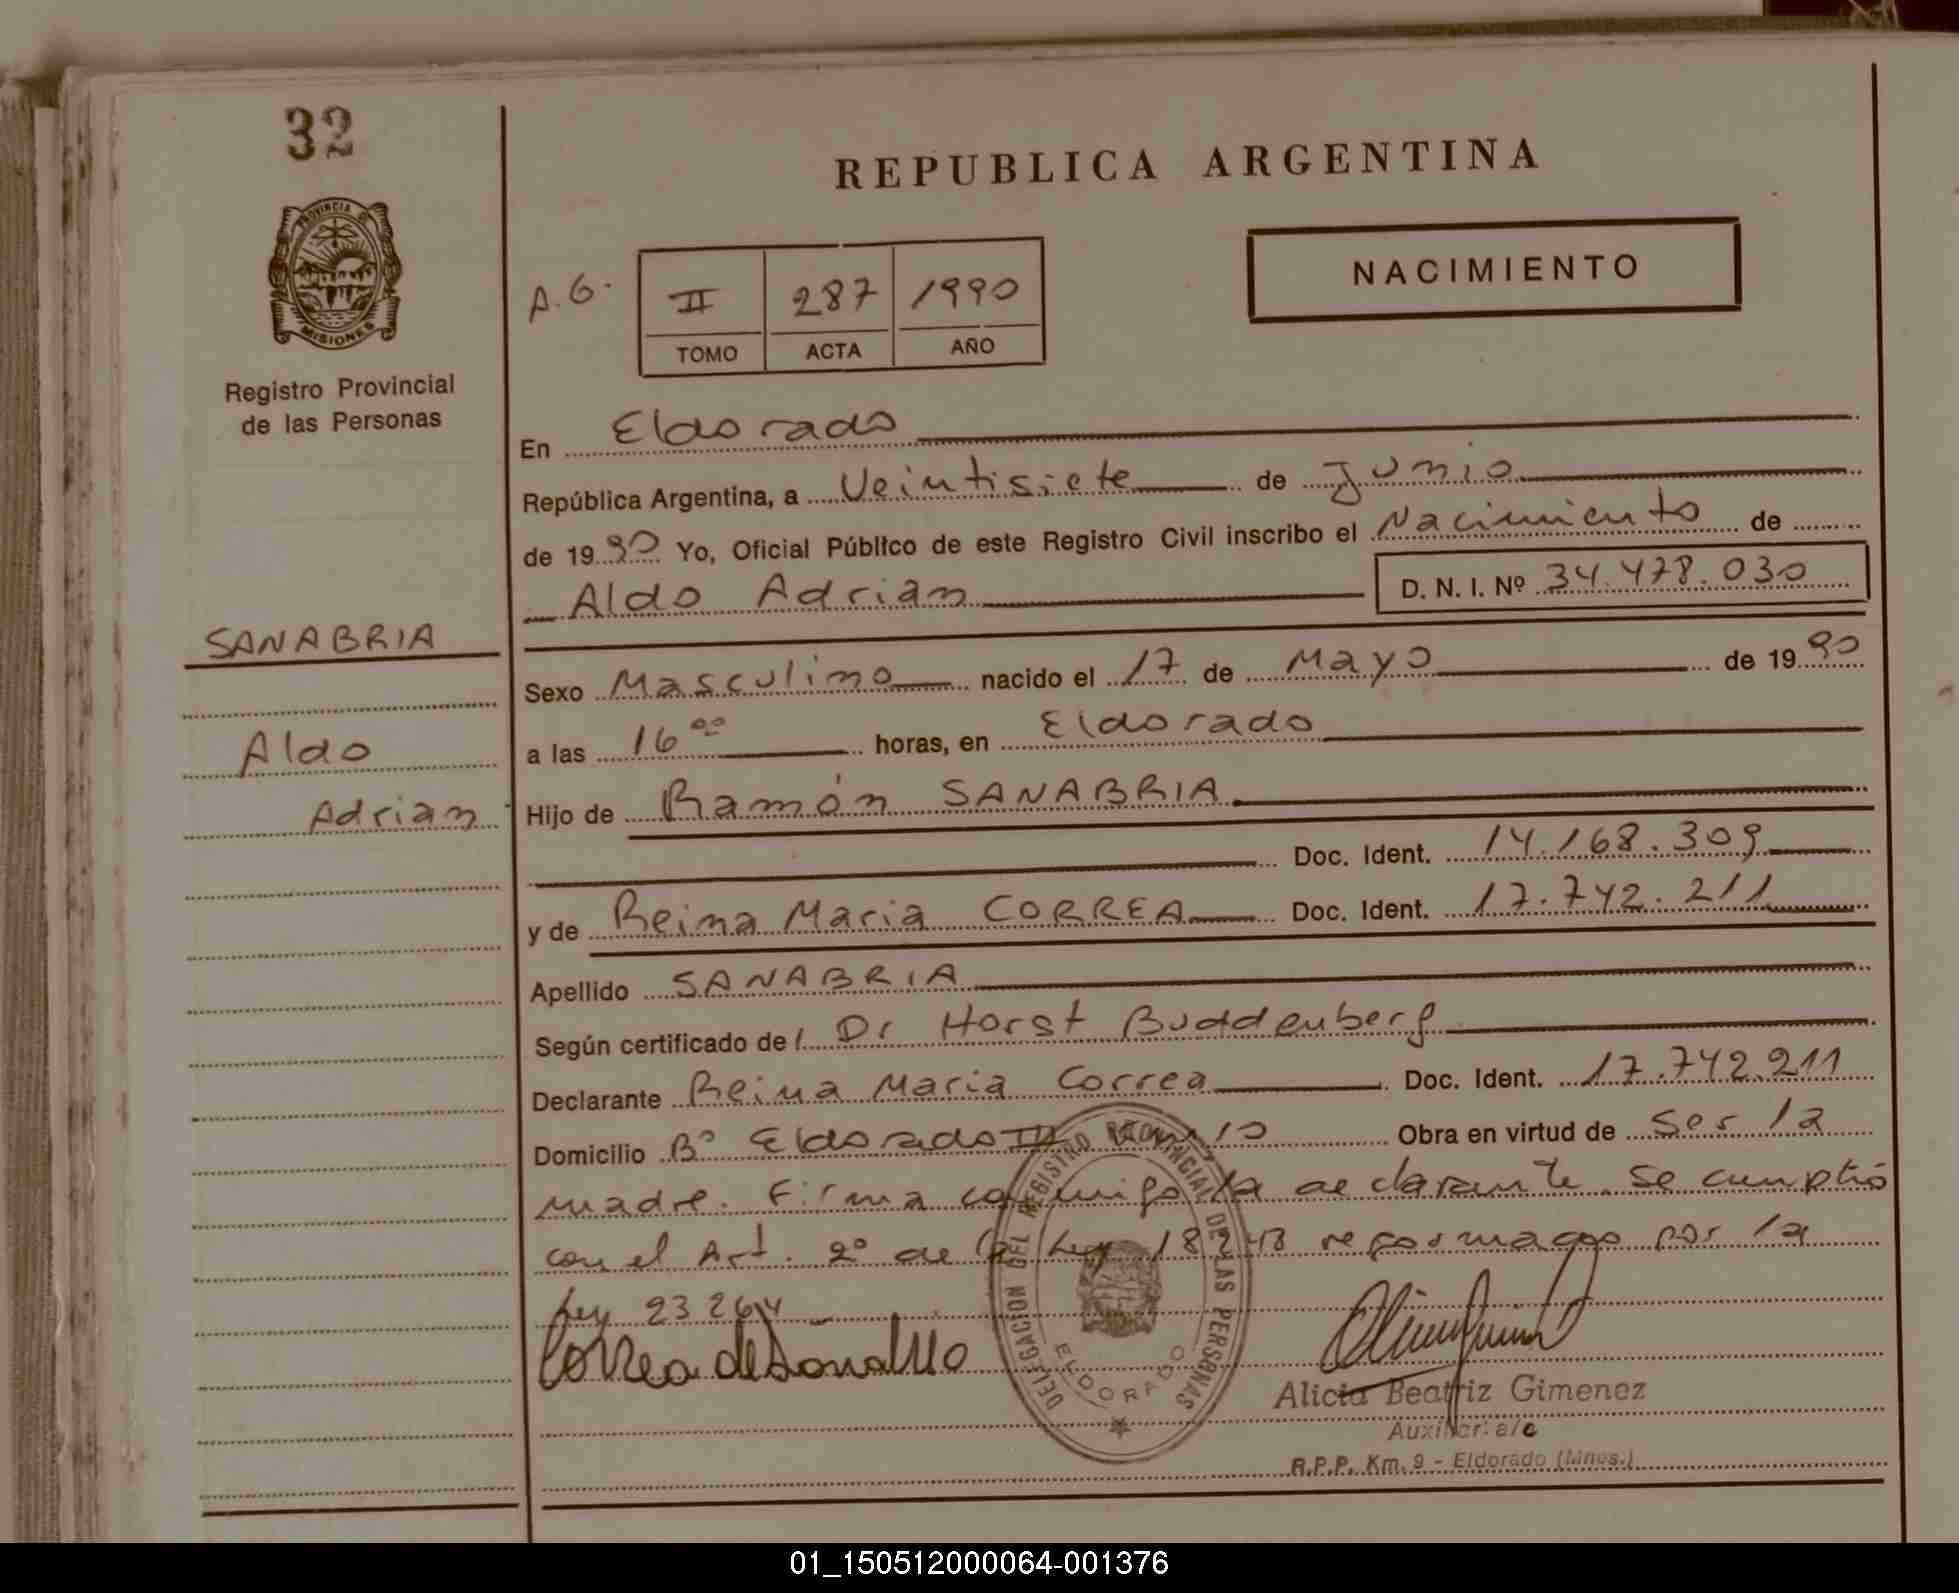 32
REPUBLICA ARGENTINA
PROVINCIA DE
MISIONES
Registro Provincial
de las Personas
NACIMIENTO
A.G.
II 287 1990
TOMO ACTA AÑO
En Eldorado
República Argentina, a Veintisiete de Junio
de 1990 Yo, Oficial Público de este Registro Civil inscribo el Nacimiento de
Aldo Adrian D. N. I. Nº 34.478.030
SANABRIA
Aldo
Adrian
Sexo Masculino nacido el 17 de Mayo de 1990
a las 16 oo horas, en Eldorado
Hijo de Ramón SANABRIA
Doc. Ident. 14.168.309
y de Reina Maria CORREA Doc. Ident. 17.742.211
Apellido SANABRIA
Según certificado de l Dr Horst Buddenberg
Declarante Reina Maria Correa Doc. Ident. 17.742.211
Domicilio Bº Eldorado III Obra en virtud de ser la
madre. Firma conmigo la declarante. Se cumplió
con el Art. 2º de la Ley 18248 reformado por la
Ley 23264
Correa de
DELEGACION DEL REGISTRO PROVINCIAL DE LAS PERSONAS
ELDORADO
Alicia Beatriz Gimenez
Auxiliar a/c
R.P.P. Km. 9 - Eldorado (Mnes.)
01_150512000064-001376